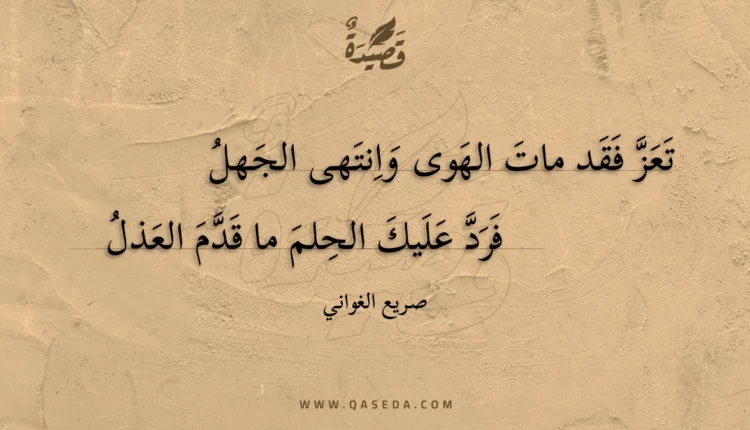 قَصِيْدَةٌ
تَعَزَّ فَقَد ماتَ الهَوى وَاِنتَهى الجَهلُ
فَرَدَّ عَلَيكَ الحِلمَ ما قَدَّمَ العَذلُ
صريع الغواني
WWW.QASEDA.COM